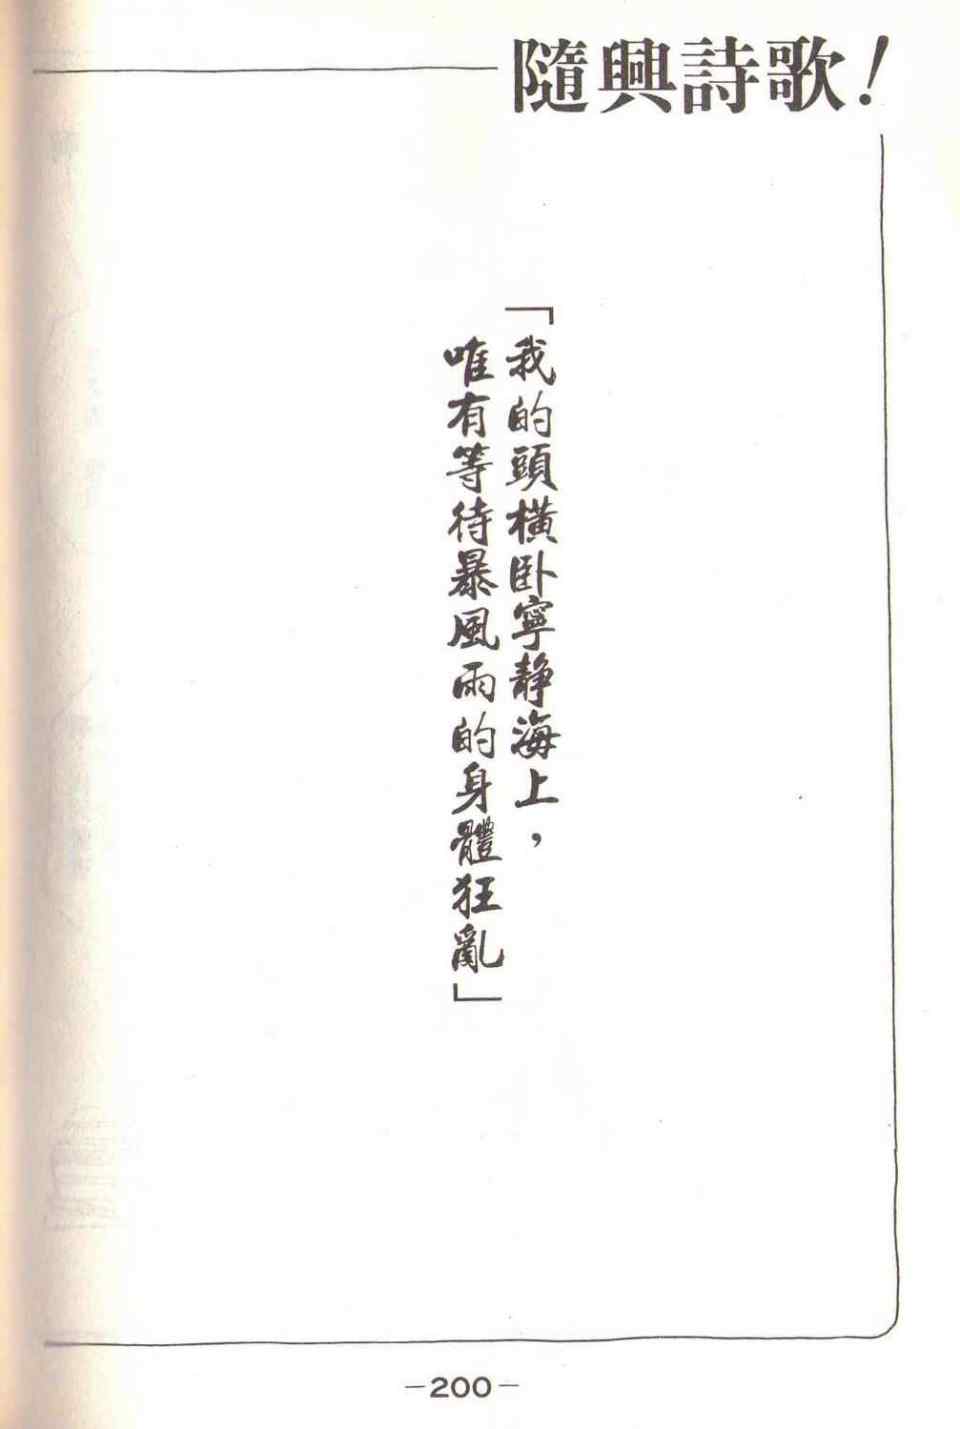 隨興詩歌！
「我的頭橫卧寧靜海上，
唯有等待暴風雨的身體狂亂」
－200－